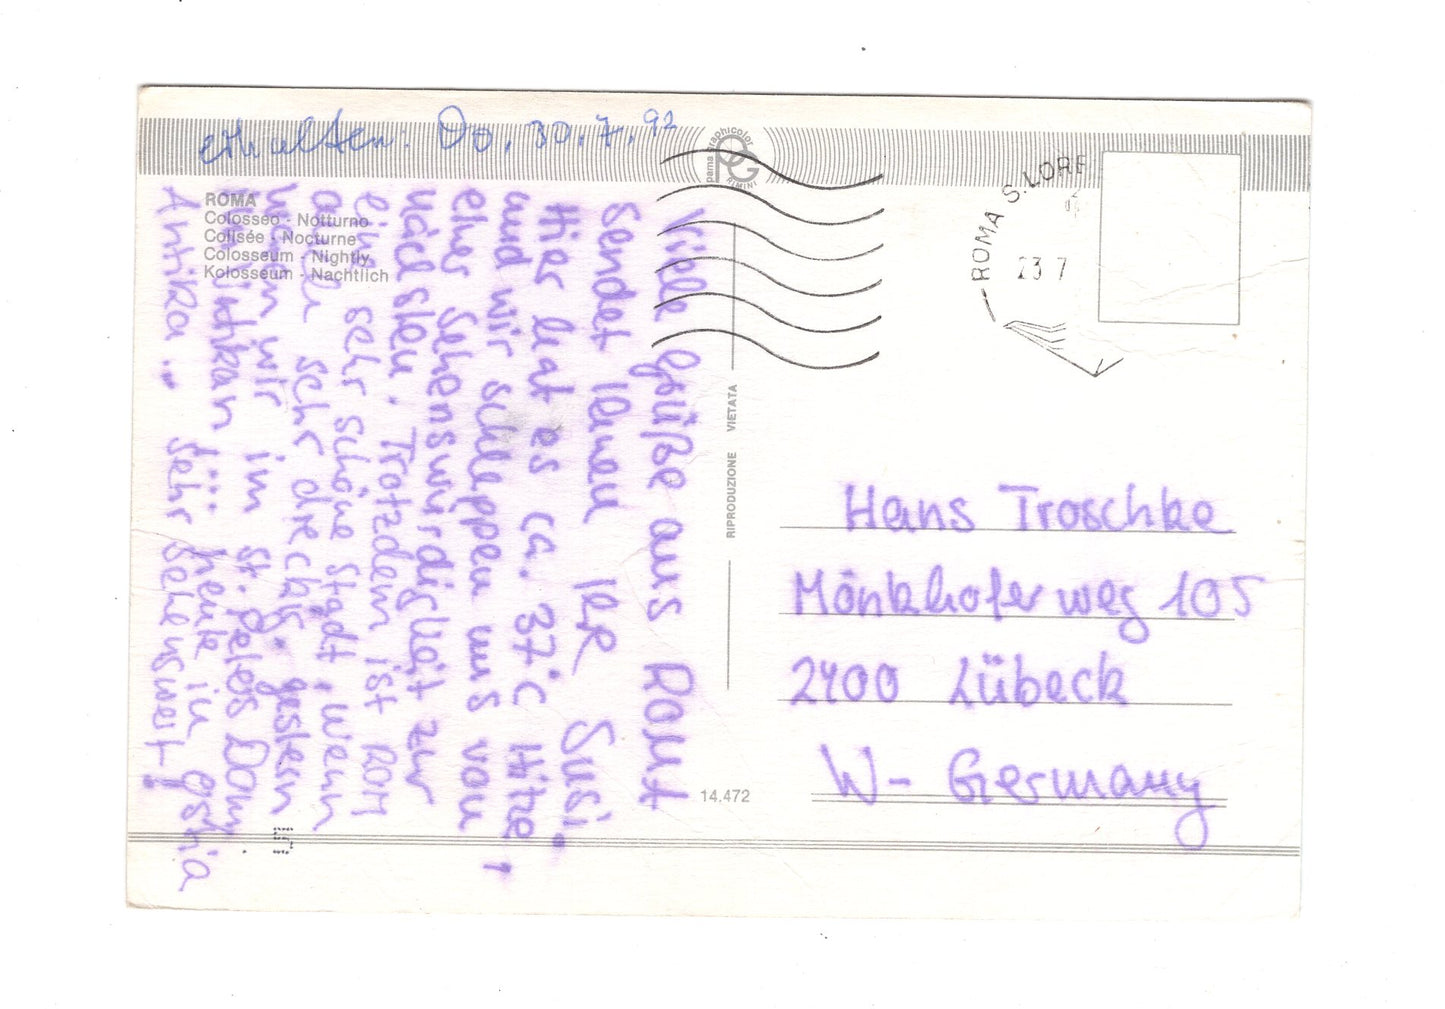 erhalten: Do. 30.7.92
parma graphicolor
PG
RIMINI
ROMA
Colosseo - Notturno
Colisée - Nocturne
Colosseum - Nightly
Kolosseum - Nachtlich
Viele Grüße aus Rom
sendet Ihnen IHR Susi.
Hier hat es ca. 37°C Hitze,
und wir schleppen uns von
einer Sehenswürdigkeit zur
nächsten. Trotzdem ist ROM
eine sehr schöne Stadt, wenn
auch sehr dreckig. gestern
waren wir im St. Peters Dom
Vatikan heute in Ostia
Antika ... sehr sehenswert!
RIPRODUZIONE VIETATA
14.472
ROMA S.LORE
23 7
Hans Troschke
Mönkhofer weg 105
2400 Lübeck
W- Germany
15